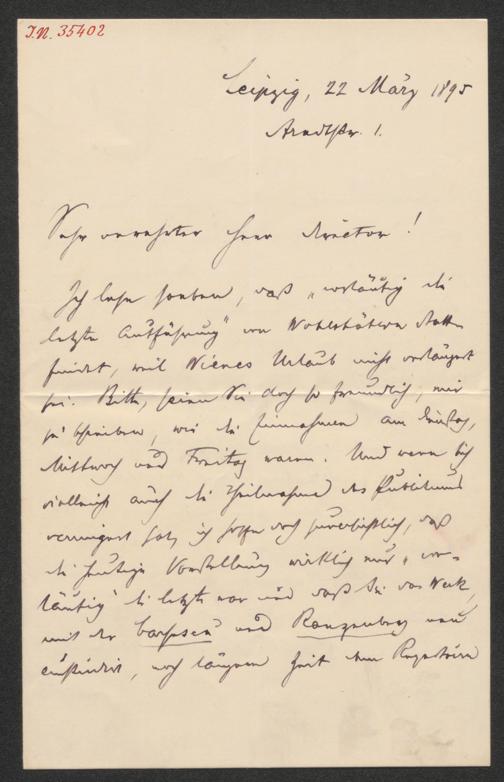 J.N. 35402
Leipzig, 22 März 1895
Arndtstr. 1.
Sehr verehrter Herr Director!
Ich lese soeben, daß "vorläufig die
letzte Aufführung" von Wohlthätern statt
findet, weil Nieses Urlaub nicht verlängert
sei. Bitte, seien Sie doch so freundlich, mir
zu schreiben, wie die Einnahmen am Dienstag,
Mittwoch und Freitag waren. Und wenn sich
vielleicht auch die Theilnahme des Publikums
verringert hat, ich hoffe doch zuversichtlich, daß
die heutige Vorstellung wirklich nur "vor-
läufig" die letzte war und daß Sie das Werk,
mit der und Ranzenberg neu
einstudirt, noch längere Zeit dem Repertoire